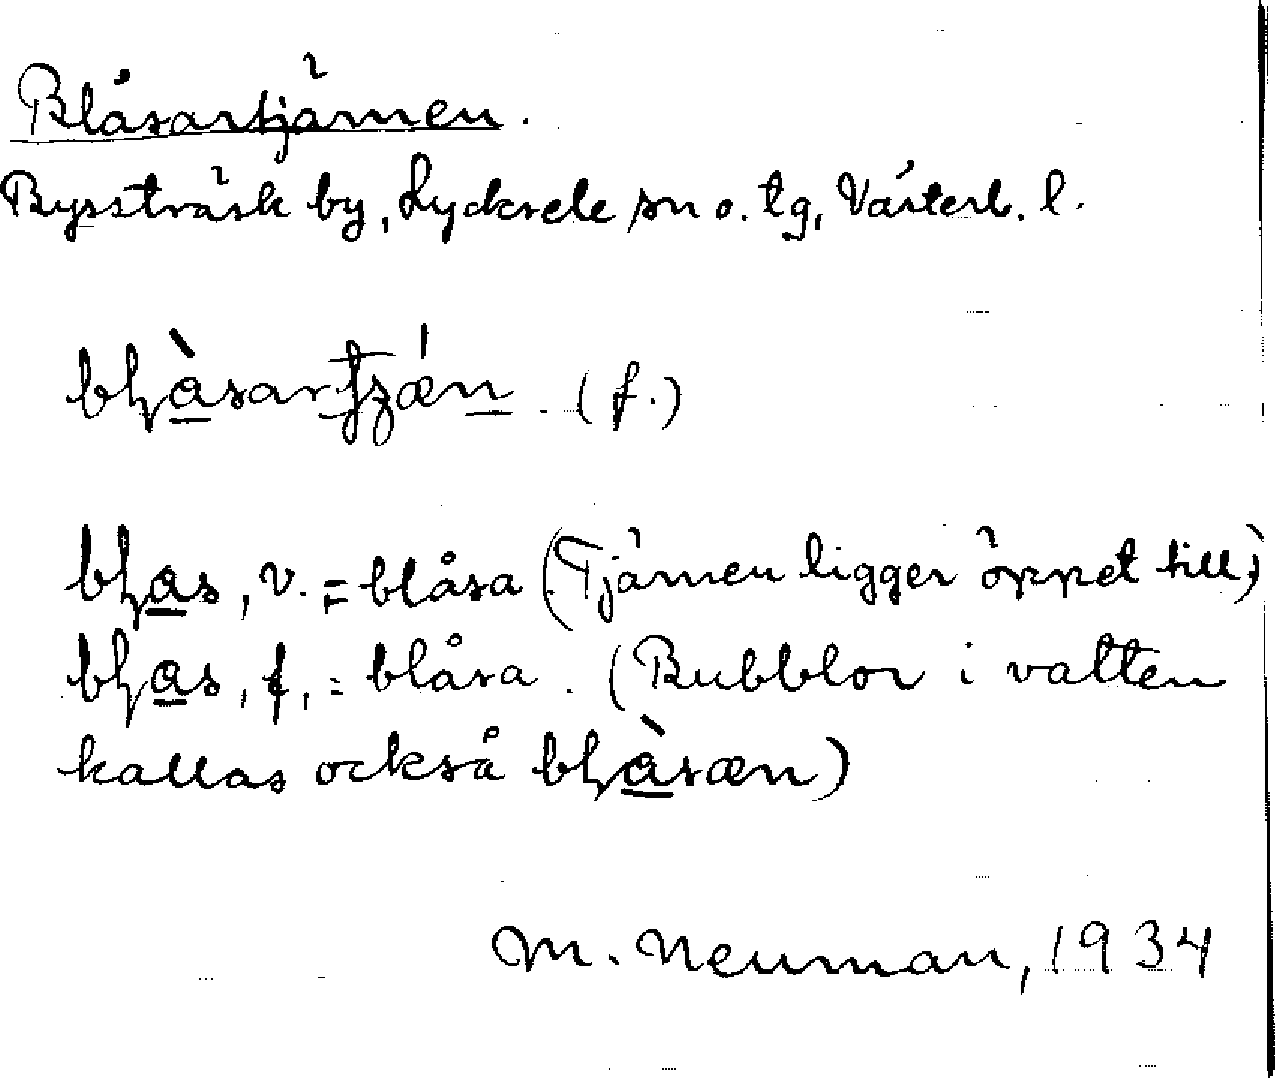 Blåsartjärnen.
Bysstråsk by, Lycksele sn o. tg, Västerb. l.
bḷàsarʈʂǽn. (f.)
bḷas, v. = blåsa (Tjärnen ligger öppet till)
bḷas, f, = blåsa. (Bubblor i vatten
kallas också bḷàsæn)
M. Neuman, 1934